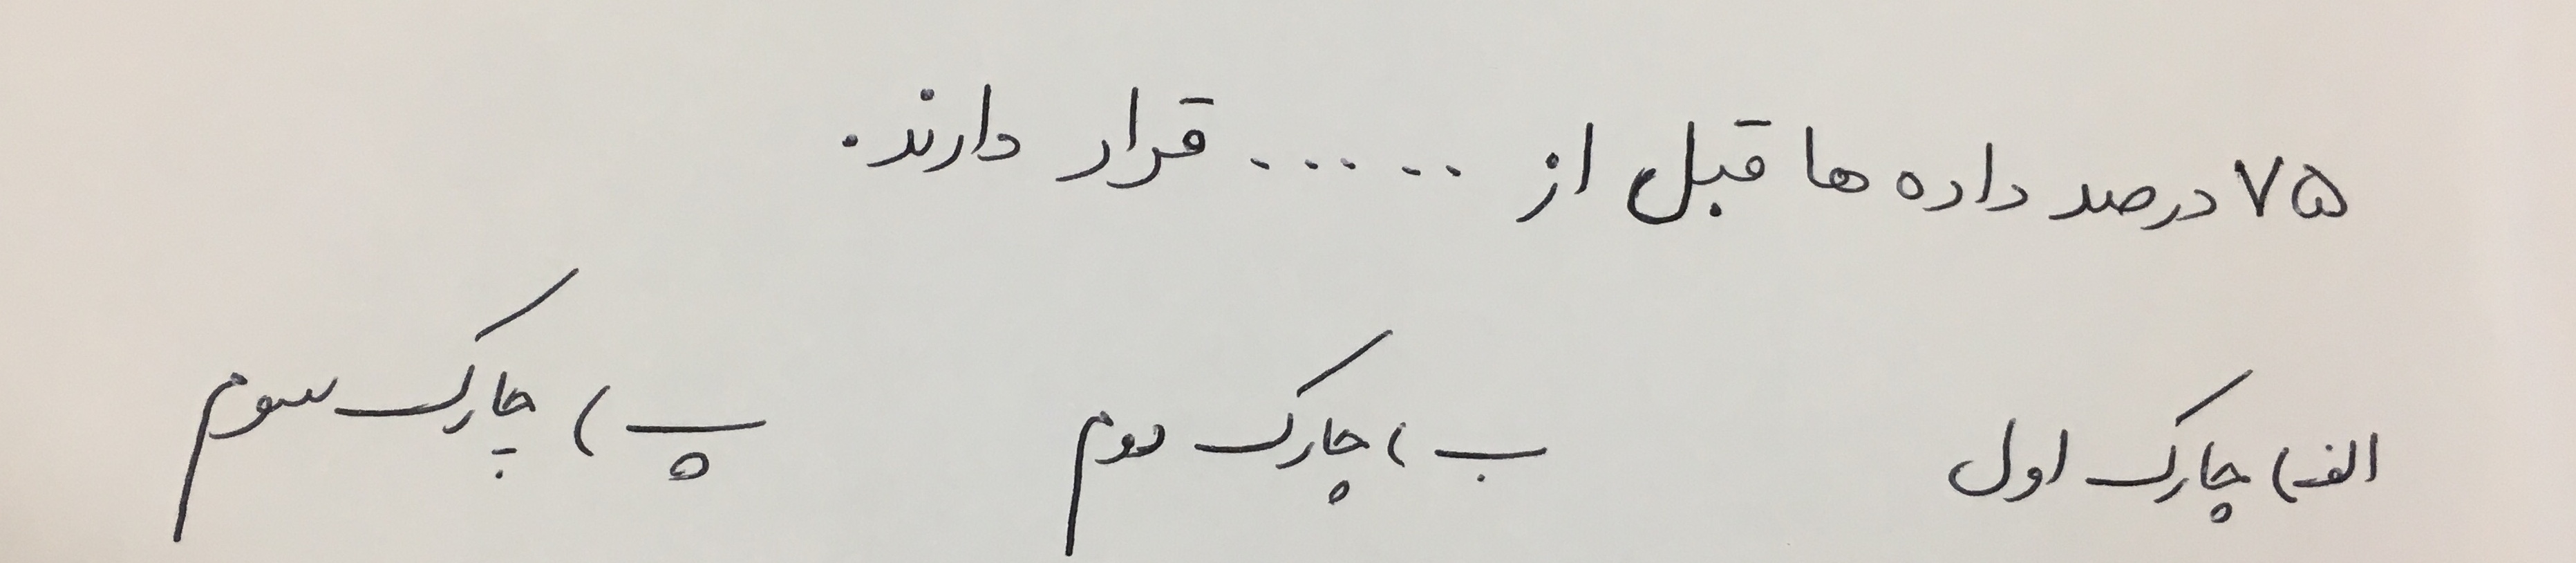 ۷۵ درصد داده ها قبل از ...... قرار دارند.
الف) چارک اول ب) چارک دوم پ) چارک سوم